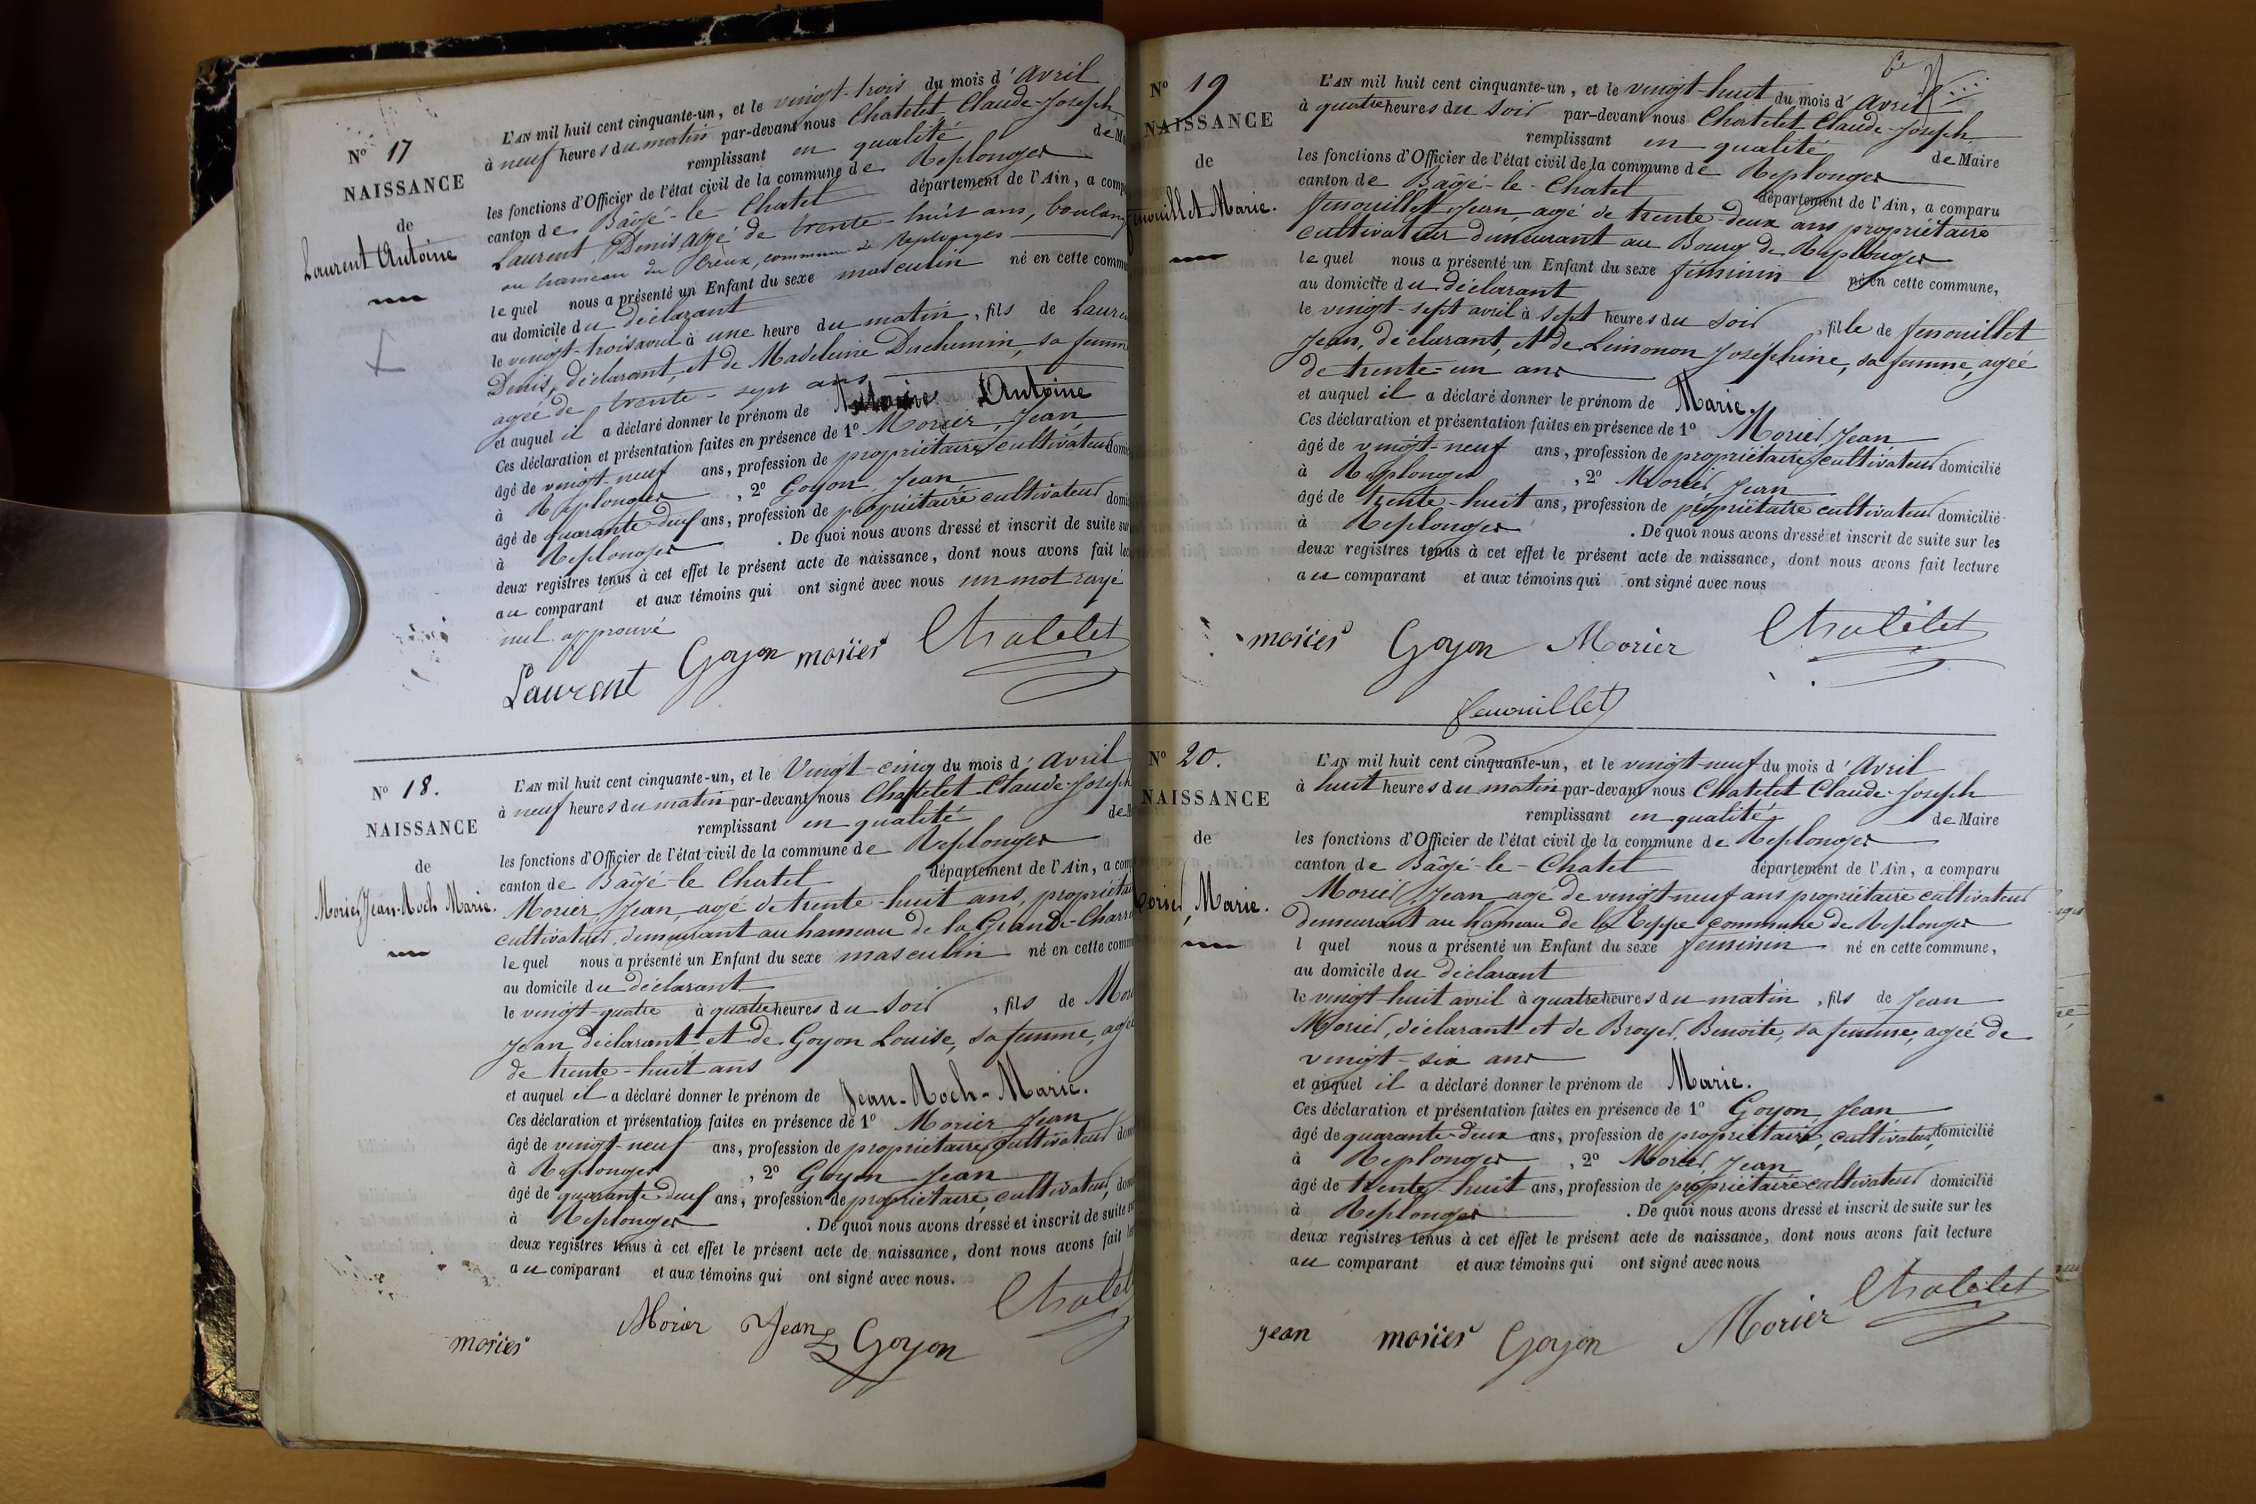 Nº 17
NAISSANCE
de
Laurent Antoine
L'AN mil huit cent cinquante-un, et le vingt-trois du mois d'Avril
à neuf heures du matin par-devant nous Chatelet Claude-Joseph
remplissant en qualité de M
les fonctions d'Officier de l'état civil de la commune de Replonges
canton de Bâgé-le-Chatel département de l'Ain, a comp
Laurent, Denis agé de trente-huit ans, boulang
au hameau du Creux, commune de Replonges
lequel nous a présenté un Enfant du sexe masculin né en cette commu
au domicile du déclarant
le vingt-trois avril à une heure du matin, fils de Laure
Denis, déclarant, et de Madeleine Duchemin, sa femm
agée de trente-sept ans
et auquel il a déclaré donner le prénom de Antoine
Ces déclaration et présentation faites en présence de 1º Morier, Jean,
âgé de vingt-neuf ans, profession de propriétaire cultivateur domi
à Replonges, 2º Goyon Jean
âgé de quarante-deux ans, profession de propriétaire cultivateur domi
à Replonges. De quoi nous avons dressé et inscrit de suite su
deux registres tenus à cet effet le présent acte de naissance, dont nous avons fait lec
au comparant et aux témoins qui ont signé avec nous un mot rayé
nul approuvé
Laurent Goyon moriier Chatelet
Nº 18.
NAISSANCE
de
Morier Jean-Roch Marie.
L'AN mil huit cent cinquante-un, et le Vingt-cinq du mois d'Avril
à neuf heures du matin par-devant nous Chatelet Claude-Joseph
remplissant en qualité de M
les fonctions d'Officier de l'état civil de la commune de Replonges
canton de Bâgé-le-Chatel département de l'Ain, a comp
Morier, Jean, agé de trente-huit ans, propriétai
cultivateur, demeurant au hameau de la Grande-Charr
lequel nous a présenté un Enfant du sexe masculin né en cette comm
au domicile du déclarant
le vingt-quatre à quatre heures du soir, fils de Mori
Jean déclarant et de Goyon Louise, sa femme, agée
de trente-huit ans
et auquel il a déclaré donner le prénom de Jean-Roch-Marie.
Ces déclaration et présentation faites en présence de 1º Morier Jean
âgé de vingt-neuf ans, profession de propriétaire, cultivateur dom
à Replonges, 2º Goyon Jean
âgé de quarante-deux ans, profession de propriétaire, cultivateur, dom
à Replonges. De quoi nous avons dressé et inscrit de suite su
deux registres tenus à cet effet le présent acte de naissance, dont nous avons fait lec
au comparant et aux témoins qui ont signé avec nous.
moriier Morier Jean Goyon Chatel
Nº 19
NAISSANCE
de
fenouillet Marie.
L'AN mil huit cent cinquante-un, et le vingt-huit du mois d'Avril
à quatre heures du soir par-devant nous Chatelet Claude-Joseph
remplissant en qualité de Maire
les fonctions d'Officier de l'état civil de la commune de Replonges
canton de Bâgé-le-Chatel département de l'Ain, a comparu
fenouillet Jean, agé de trente-deux ans propriétaire
cultivateur demeurant au Bourg de Replonges
lequel nous a présenté un Enfant du sexe féminin né en cette commune,
au domicile du déclarant
le vingt-sept avril à sept heures du soir, fille de fenouillet
Jean, déclarant, et de Limonon Joséphine, sa femme, agée
de trente-un ans
et auquel il a déclaré donner le prénom de Marie.
Ces déclaration et présentation faites en présence de 1º Morier Jean
âgé de vingt-neuf ans, profession de propriétaire cultivateur domicilié
à Replonges, 2º Morier Jean
âgé de trente-huit ans, profession de propriétaire cultivateur domicilié
à Replonges. De quoi nous avons dressé et inscrit de suite sur les
deux registres tenus à cet effet le présent acte de naissance, dont nous avons fait lecture
au comparant et aux témoins qui ont signé avec nous
moriier Goyon Morier Chatelet
fenouillet
Nº 20.
NAISSANCE
de
Morier, Marie.
L'AN mil huit cent cinquante-un, et le vingt-neuf du mois d'Avril
à huit heures du matin par-devant nous Chatelet Claude-Joseph
remplissant en qualité de Maire
les fonctions d'Officier de l'état civil de la commune de Replonges
canton de Bâgé-le-Chatel département de l'Ain, a comparu
Morier, Jean, agé de vingt-neuf ans propriétaire cultivateur
demeurant au hameau de la Teppe commune de Replonges
l quel nous a présenté un Enfant du sexe féminin né en cette commune,
au domicile du déclarant
le vingt-huit avril à quatre heures du matin, fils de Jean
Morier, déclarant et de Broyer, Benoite, sa femme, agée de
vingt-six ans
et auquel il a déclaré donner le prénom de Marie.
Ces déclaration et présentation faites en présence de 1º Goyon, Jean
âgé de quarante-deux ans, profession de propriétaire, cultivateur, domicilié
à Replonges, 2º Morier, Jean
âgé de trente-huit ans, profession de propriétaire cultivateur domicilié
à Replonges. De quoi nous avons dressé et inscrit de suite sur les
deux registres tenus à cet effet le présent acte de naissance, dont nous avons fait lecture
au comparant et aux témoins qui ont signé avec nous
jean moriier Goyon Morier Chatelet